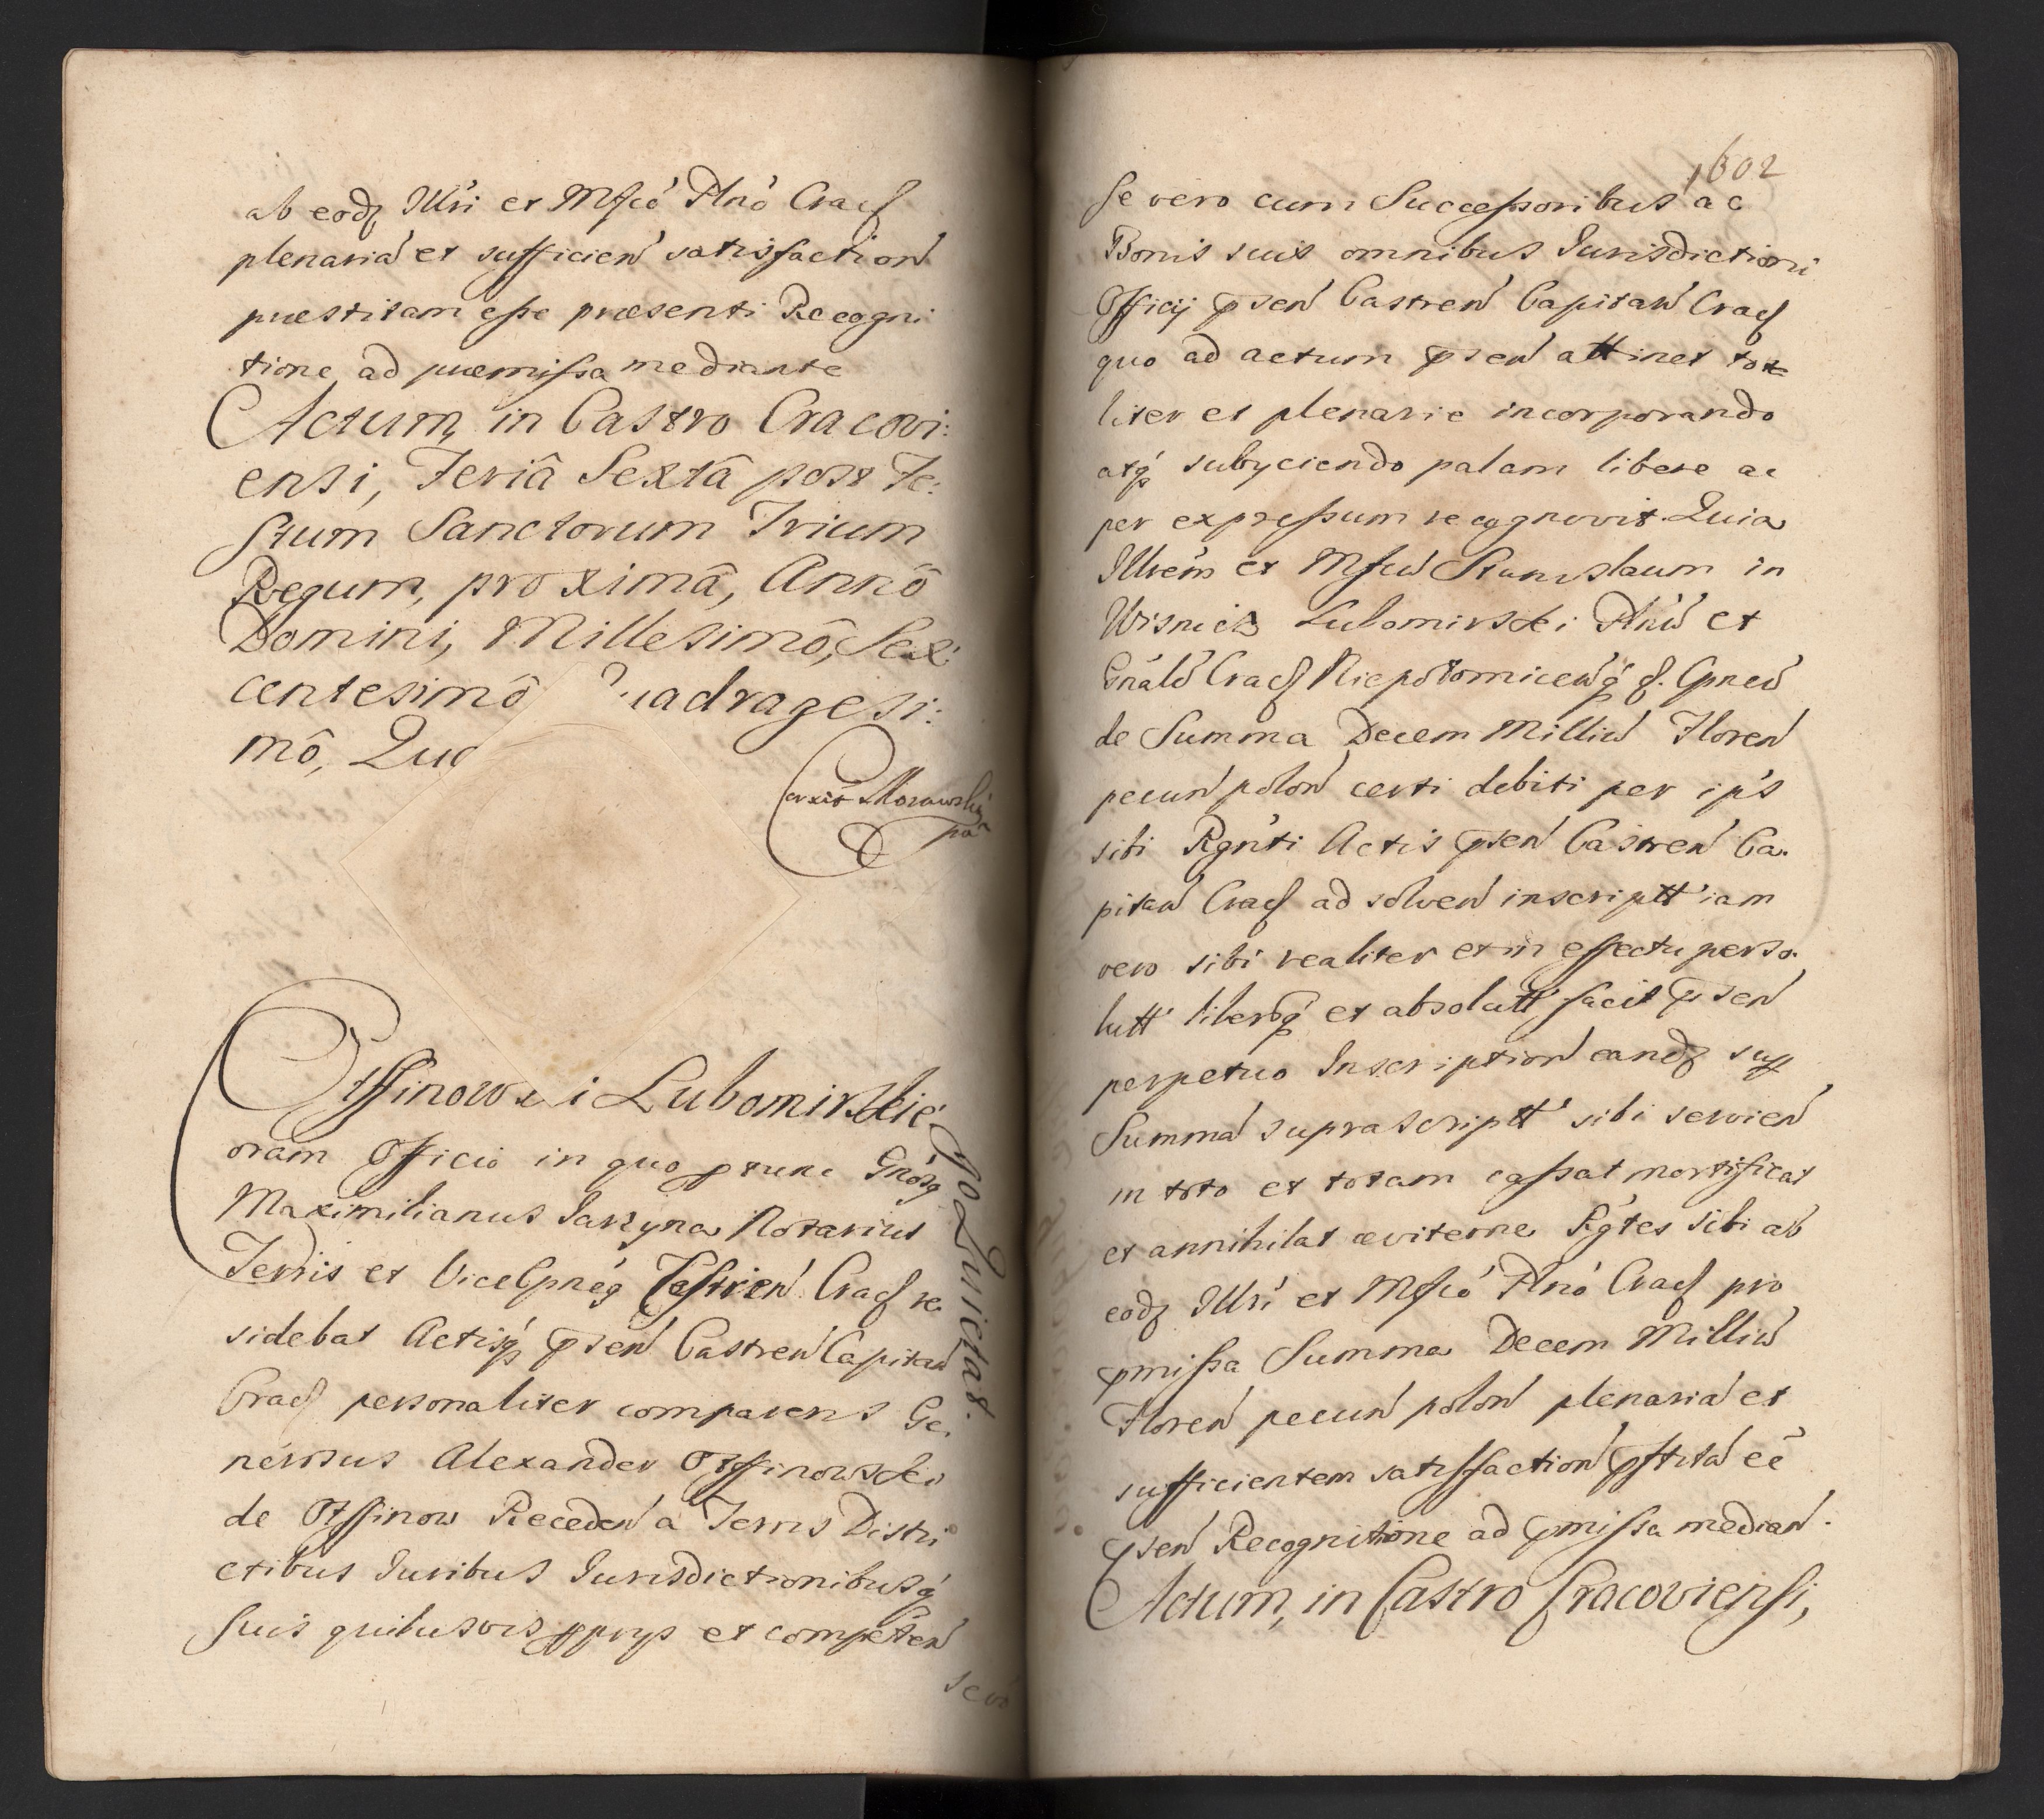 ab eodz Illri et Mfcó Plnó Cracf
plenariā et sufficień satisfactioń
præstitam esse præsenti Recogni
tione ad præmissa mediante
Actum, in Castro Cracovi:
ensi, Feriâ Sextâ post Fe:
stum Sanctorum Trium
Regum, proximâ, Annô
Domini, Millesimô, Sex:
centesimô Quadragesi:
mô, Quo
Morawski
Otffinowski Lubomirskie
oram Officio in quo ptunc Gnosq
Maximilianus Jarzyna Notarius
Terris et ViceCpneg Castreń Cracf re
sidebat Actisq pseń Castreń Capitań
Cracf personaliter comparens Ge.
nerosus Alexander Otffinowski
de Otffinow Recedeń a Terris Distri
ctibus Juribus Jurisdictionibusq
Suis quibusvis pprijs et competeń
sevo
Quietat.
1602
Se vero cum Successoribus ac
Bonis suis omnibus Jurisdictioni
Officij pseń Castreń Capitań Cracf
quo ad actum pseń attinet tota
liter et plenarie incorporando
atq subyciendo palam libere ac
per expressum recognovit Quia
Illrem et Mfcū Stanislaum in
Wisnicz Lubomirski Plnū et
Gnalū Cracf Niepotomiceńq f. Cpneū
de Summa Decem Milliū Floreń
pecuń poloń certi debiti per ips
sibi Rgnti Actis pseń Castreń Ca.
pitań Cracf ad solveń inscriptt iam
vero sibi realiter et in effectu perso.
lutt liberūq et absolutt facit pseń
perpetuo Inscriptioń eandz sup
Summā suprascriptt sibi servień
in toto et totam cassat mortificat
et annihilat æviterne Rgtes sibi ab
eodz Illri et Mfcó Plnó Cracf pro
pmissa Summa Decem Milliū
Floreń pecuń poloń plenariā et
sufficientem satisfactioń pstitā eē
pseń Recognitione ad pmissa mediań.
Actum, in Castro Cracoviensi,